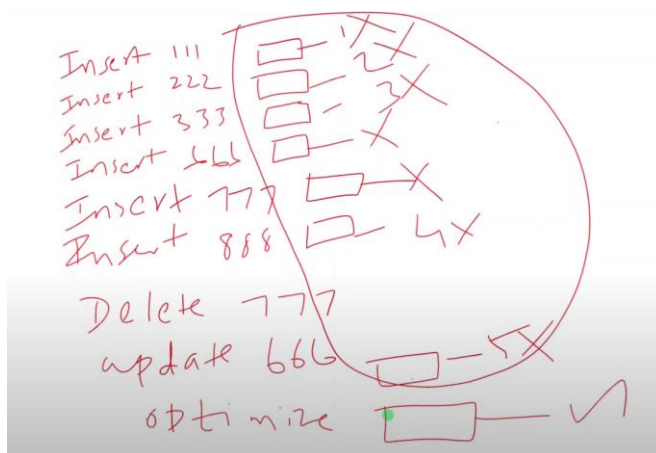 Insert 111 1X
Insert 222 2X
Insert 333 3X
Insert 666 X
Insert 777 X
Insert 888 4X
Delete 777
update 666 5X
optimize